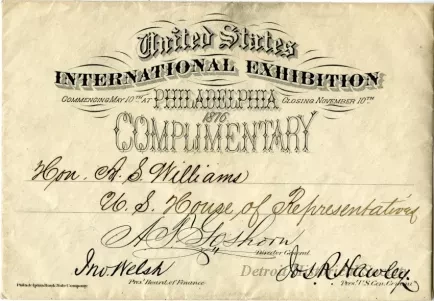 United States
INTERNATIONAL EXHIBITION
COMMENCING MAY 10TH AT PHILADELPHIA CLOSING NOVEMBER 10TH
1876
COMPLIMENTARY
Hon. A. S. Williams
U. S. House of Representatives
A. T. Goshorn
Director General
Jno Welsh
Pres't Board of Finance
Jos. R. Hawley
Pres't U.S. Cen. Com
Detroit
Philadelphia Bank Note Company